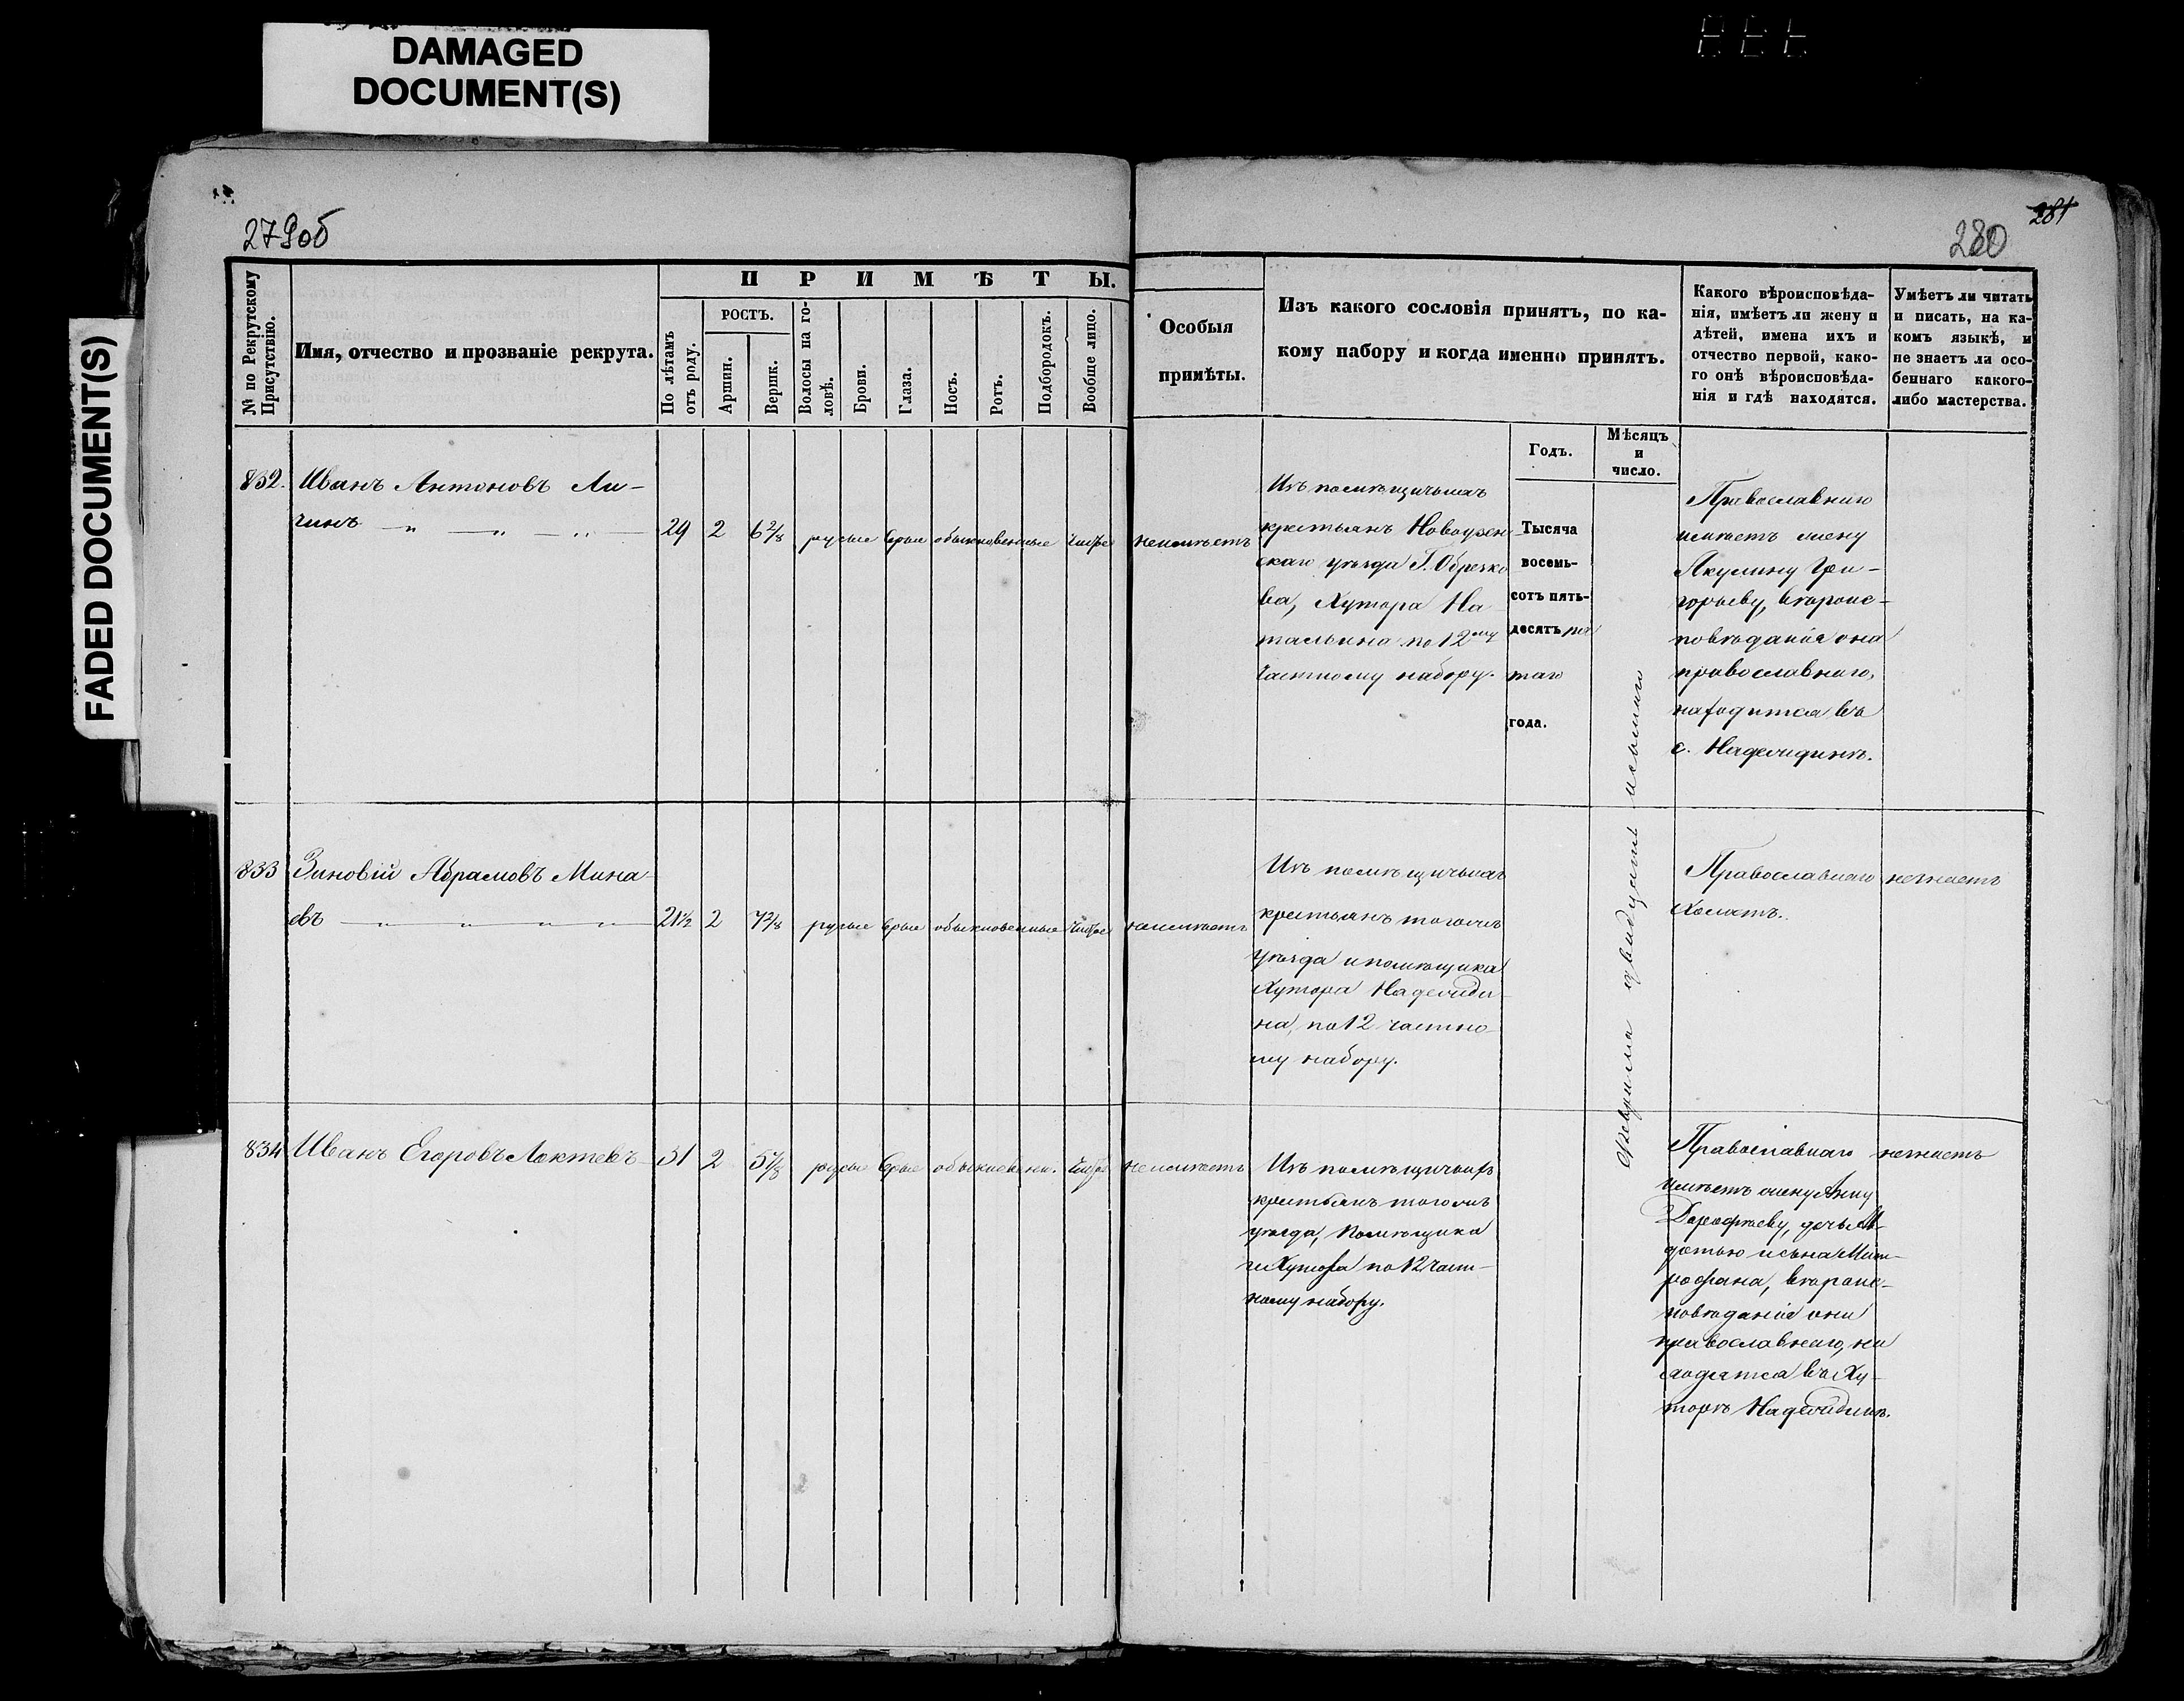 DAMAGED
DOCUMENT(S)
FADED DOCUMENT(S)
279об
280
281
№ по Рекрутскому
Присутствію.
Имя, отчество и прозваніе рекрута.
ПРИМѢТЫ.
По лѣтамъ
отъ роду.
РОСТЪ.
Аршин.
Вершк.
Волосы на го-
ловѣ.
Брови.
Глаза.
Носъ.
Ротъ.
Подбородокъ.
Вообще лицо.
Особыя
примѣты.
Изъ какого сословія принятъ, по ка-
кому набору и когда именно принятъ.
Годъ.
Мѣсяцъ
и
число.
Какого вѣроисповѣда-
нія, имѣетъ ли жену и
дѣтей, имена ихъ и
отчество первой, како-
го онѣ вѣроисповѣда-
нія и гдѣ находятся.
Умѣетъ ли читать
и писать, на ка-
комъ языкѣ, и
не знаетъ ли осо-
беннаго какого-
либо мастерства.
832.
Иванъ Антоновъ Ли-
чинъ — „ — „ — „ —
29 2 6 2/8 русые серые обыкновенные чистое
неимѣетъ
Изъ помѣщичьихъ
крестьянъ Новоузен
скаго уѣзда Г. Обрезко
ва, Хутора На
тальина по 12му
частному набору.
Тысяча
восемь-
сотъ пять-
десятъ пя
таго
года.
Февраля двадцать
Православнаго
имѣетъ жену
Акулину Гри-
горьеву, вѣроис-
повѣданія она
православнаго,
находится въ
с. Надеждинѣ.
833
Зиновій Абрамовъ Мина
евъ — „ — „ — „ — „ —
21½ 2 7 2/8 русые серые обыкновенные чистое
неимѣетъ
Изъ помѣщичьихъ
крестьянъ тогожъ
уѣзда и помѣщика
Хутора Надежди-
на, по 12 частно-
му набору.
Православнаго
Холостъ.
незнаетъ
834
Иванъ Егоровъ Локтевъ
31 2 5 7/8 русые серые обыкновенн. чистое
неимѣетъ
Изъ помѣщичьихъ
крестьянъ тогожъ
уѣзда, Помѣщика
и Хутора по 12 част-
ному набору.
Православнаго
имѣетъ жену Анну
Дорофѣеву, дочь Ав-
дотью и сына Мит-
рофана, вѣроис-
повѣданія они
православнаго, на
ходятся въ Ху-
торѣ Надеждинѣ.
незнаетъ